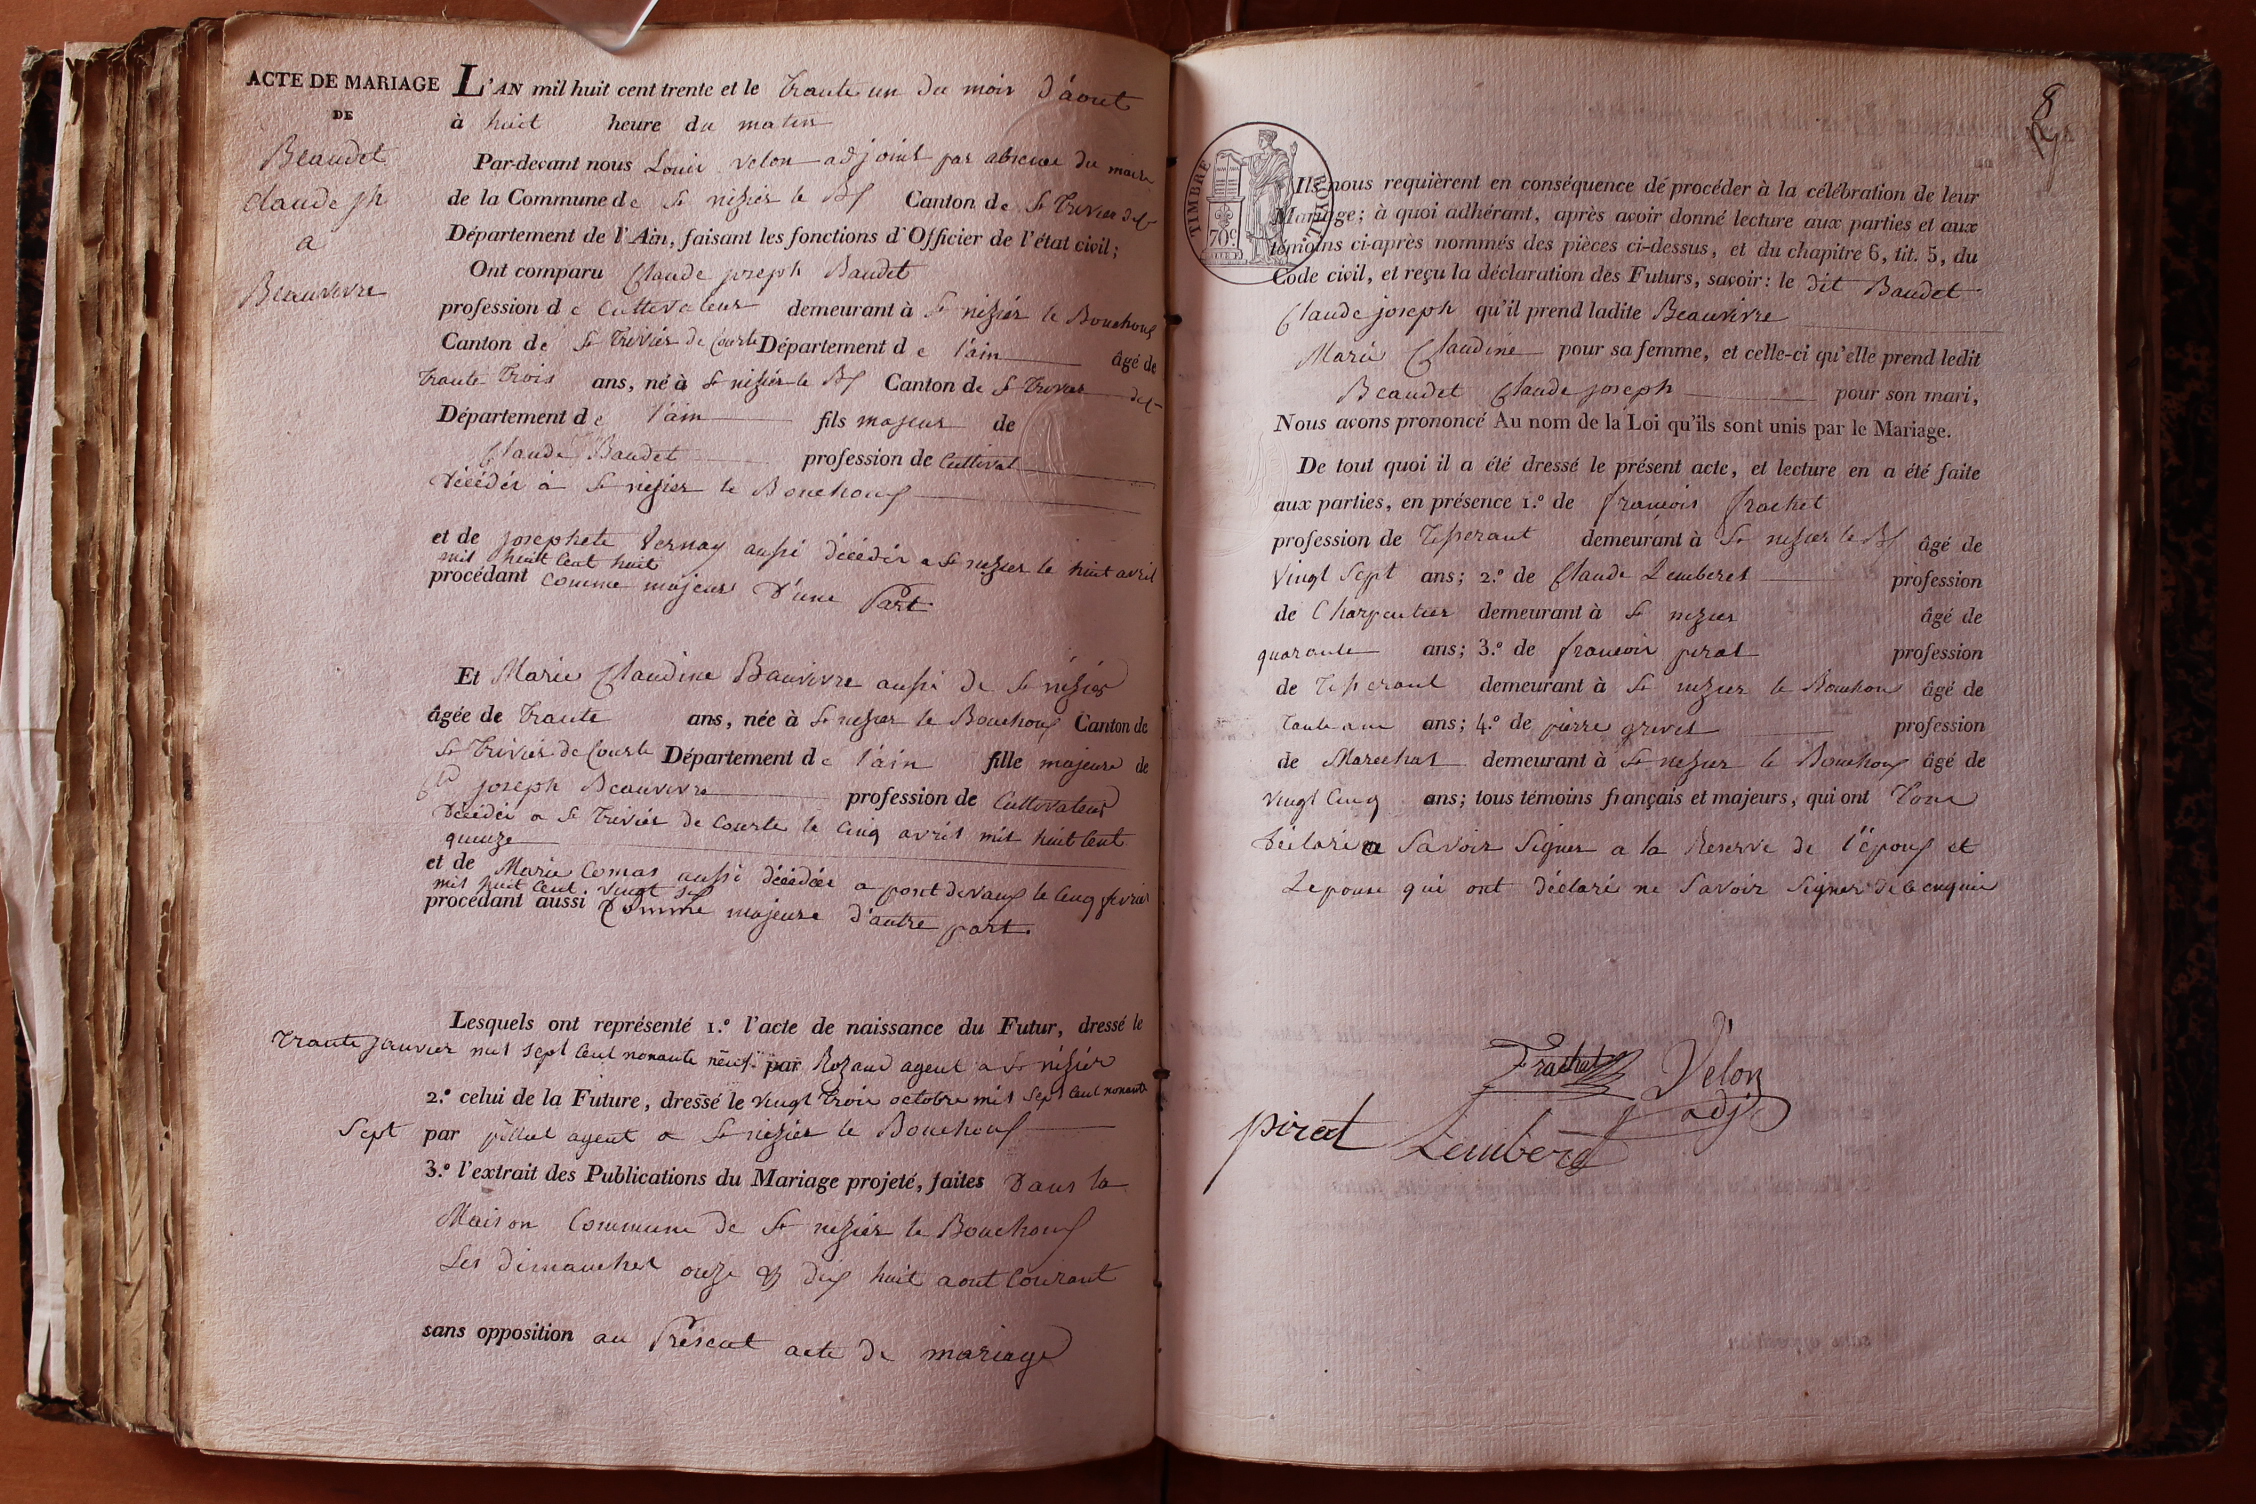 ACTE DE MARIAGE
DE
Beaudet
Claude jph
a
Beauvivre
L'AN mil huit cent trente et le trante un du mois d'aout
à huit heure du matin
Par-devant nous Louis velon adjoint par absence du maire
de la Commune de St nizier le Bf Canton de St trivier de C
Département de l'Ain, faisant les fonctions d'Officier de l'état civil;
Ont comparu Claude joseph Baudet
profession de Cultivateur demeurant à St nizier le Bouchoux
Canton de St trivier de Courte Département de l'ain âgé de
trante trois ans, né à St nizier le Bf Canton de St trivier de C
Département de l'ain fils majeur de
Claude Baudet profession de Cultivat
décédér à St nizier le Bouchoux
et de josephete Vernay aussi décédér a St nizier le huit avril
mil huit cent huit
procédant comme majeur d'une Part
Et Marie Claudine Bauvivre aussi de St nizier
âgée de trante ans, née à St nizier le Bouchoux Canton de
St trivier de Courte Département de l'ain fille majeure de
joseph Beauvivre profession de Cultivateur
décédér a St trivier de Courte le cinq avril mil huit cent
quinze
et de Marie Comas aussi décédée a pont devaux le cinq fevrier
mil huit cent vingt six
procédant aussi Comme majeure d'autre part.
Lesquels ont représenté 1.° l'acte de naissance du Futur, dressé le
trante janvier mil sept cent nonante neuf par Rozand agent a St nizier
2.° celui de la Future, dressé le vingt trois octobre mil sept cent nonante
sept par pillut agent a St nizier le Bouchoux
3.° l'extrait des Publications du Mariage projeté, faites dans la
Maison Commune de St nezier le Bouchoux
Les dimanches onze & dix huit aout Courant
sans opposition au Présent acte de mariage
8
TIMBRE ROYAL
70c
Ils nous requièrent en conséquence de procéder à la célébration de leur
Mariage; à quoi adhérant, après avoir donné lecture aux parties et aux
témoins ci-après nommés des pièces ci-dessus, et du chapitre 6, tit. 5, du
Code civil, et reçu la déclaration des Futurs, savoir: le dit Baudet
Claude joseph qu'il prend ladite Beauvivre
Marie Claudine pour sa femme, et celle-ci qu'elle prend ledit
Beaudet Claude joseph pour son mari,
Nous avons prononcé Au nom de la Loi qu'ils sont unis par le Mariage.
De tout quoi il a été dressé le présent acte, et lecture en a été faite
aux parties, en présence 1.° de francois frachet
profession de tisserant demeurant à St nizier le Bf âgé de
vingt Sept ans; 2.° de Claude Lemberet profession
de Charpentier demeurant à St nizier âgé de
quarante ans; 3.° de francois pirat profession
de tisserant demeurant à St nizier le Bouchoux âgé de
ans; 4.° de pierre grivet profession
de Marechal demeurant à St nezier le Bouchoux âgé de
vingt Cinq ans; tous témoins français et majeurs, qui ont tous
déclaré Savoir Signer a la Reserve de l'époux et
Lepouse qui ont déclaré ne Savoir Signer de ce enquis
Frachet Velon
adj
pirat Lemberet